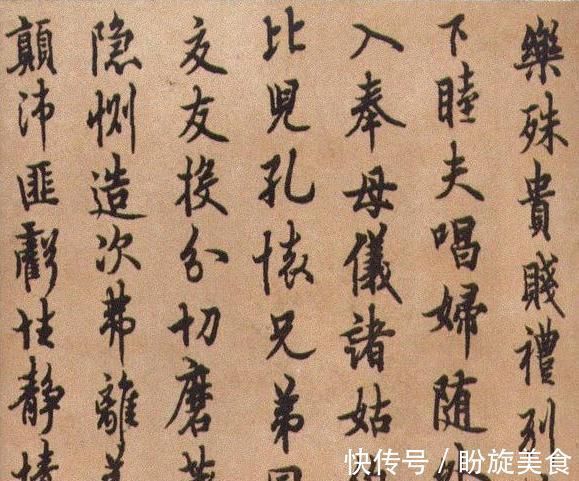 樂殊貴賤禮別
下睦夫唱婦随外
入奉母儀諸姑
比兒孔懷兄弟同
交友投分切磨
隐惻造次弗離
顛沛匪虧性静情
快传号 / 盼旋美食